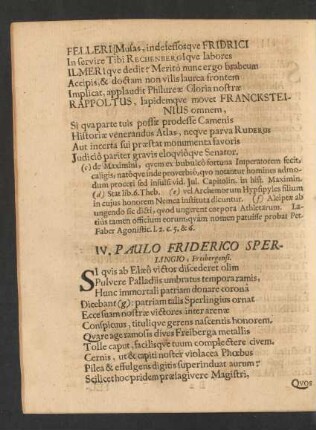 FELLERI Musas, indefessosque FRIDRICI
In servire Tibi RECHENBERGIqve labores
ILMERIqve dedit? Meritò nunc ergo brabeum
Accipis, & doctam non vilis laurea frontem
Implicat, applaudit Philureæ Gloria nostræ
RAPPOLTUS, lapidemqve movet FRANCKSTEI-
NIUS omnem,
Si qva parte tuis possit prodesse Camenis
Historiæ venerandus Atlas, neqve parva RUDERUS
Aut incerta sui præstat monumenta favoris
Judiciô pariter gravis eloqviôqve Senator.
(c) de Maximino, qvem ex bubulco fortuna Imperatorem fecit,
caligis natôqve inde proverbiô, qvo notantur homines admo-
dum proceri sed insulsi vid. Jul. Capitolin. in hist. Maximin.
(d) Stat lib. 6. Theb. (e) vel Archemorum Hypsipyles filium
in cujus honorem Nemea instituta dicuntur. (f) Aleiptæ ab
ungendo sic dicti, qvod ungerent corpora Athletarum. La-
tius tamen officium eorum, qvàm nomen patuisse probat Pet.
Faber Agonistic. l. 2. c. 5. & 6.
IV. PAULO FRIDERICO SPER-
LINGIO, Freibergensi.
SI qvis ab Elæô victor discederet olim
Pulvere Palladiis umbratus tempora ramis,
Hunc immortali patriam donare coronâ
Dicebant (g): patriam talis Sperlingius ornat
Ecce suam nostræ victores inter arenæ
Conspicuus, tituliqve gerens nascentis honorem.
Qvare age ramosis dives Freiberga metallis
Tolle caput, facilisqve tuum complectere civem.
Cernis, ut & capiti noster violacea Phœbus
Pilea & effulgens digitis superinduat aurum?
Scilicet hoc pridem prælagivere Magistri,
Qvos